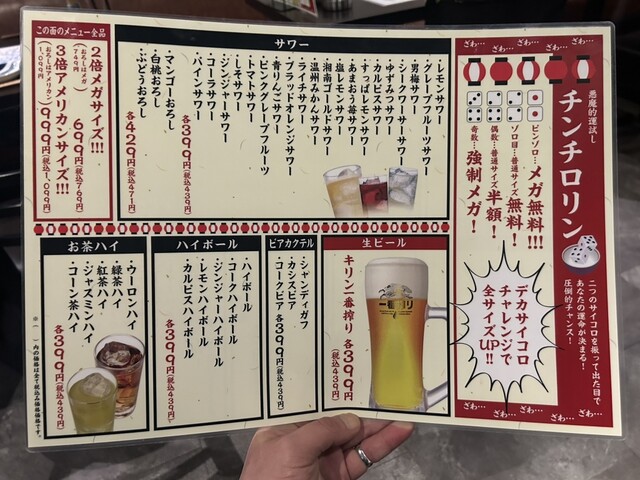 ざわ… ざわ… ざわ… ざわ…
悪魔的運試し
チンチロリン
二つのサイコロを振って出た目で
あなたの運命が決まる!
圧倒的チャンス!
ピンゾロ…メガ無料!!!
ゾロ目…普通サイズ無料!
偶数…普通サイズ半額!
奇数…強制メガ!
デカサイコロ
チャレンジで
全サイズUP!!
ざわ… ざわ… ざわ… ざわ…
サワー
・レモンサワー
・グレープフルーツサワー
・男梅サワー
・シークワーサーサワー
・ゆずみつサワー
・カルピスサワー
・すっぱレモンサワー
・あまおう苺サワー
・塩レモンサワー
・湘南ゴールドサワー
・温州みかんサワー
・ライチサワー
・ブラッドオレンジサワー
・青りんごサワー
・ピンクグレープフルーツ
・トマトサワー
・しそサワー
・ジンジャーサワー
・コーラサワー
・パインサワー
各399円(税込439円)
・マンゴーおろし
・白桃おろし
・ぶどうおろし
各429円(税込471円)
この面のメニュー全品
2倍メガサイズ!!!
699円(税込769円)
(おろしはメガ)
749円
3倍アメリカンサイズ!!!
999円(税込1,099円)
(おろしはアメリカン)
1,099円
生ビール
キリン一番搾り 各399円
(税込439円)
一番搾り
ビアカクテル
・シャンディガフ
・カシスビア
・コークビア
各399円(税込439円)
ハイボール
・ハイボール
・コークハイボール
・ジンジャーハイボール
・レモンハイボール
・カルピスハイボール
各399円(税込439円)
お茶ハイ
・ウーロンハイ
・緑茶ハイ
・紅茶ハイ
・ジャスミンハイ
・コーン茶ハイ
各399円(税込439円)
※( )内の価格は全て税込み価格価格です。